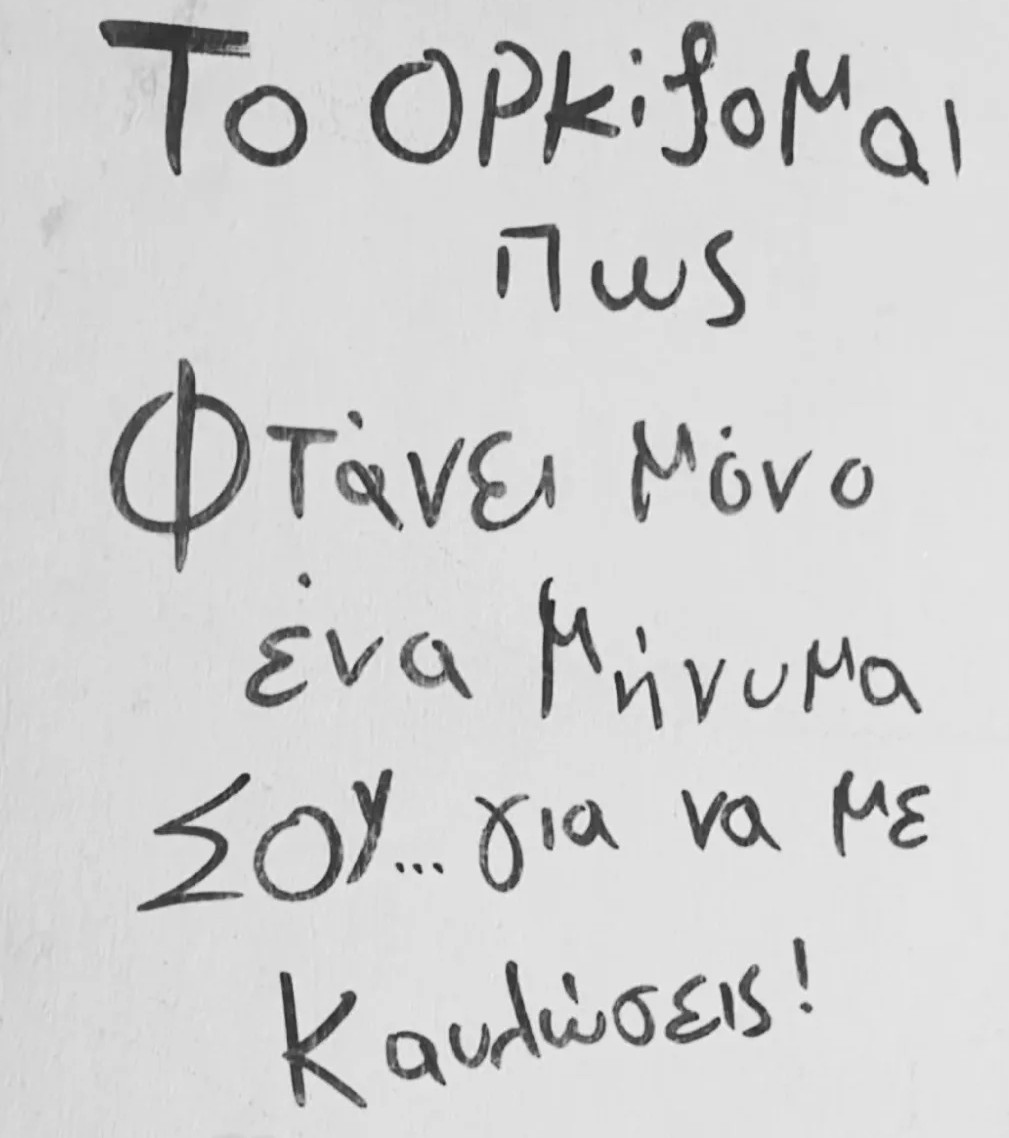 Το ορκίζομαι
πως
Φτάνει μόνο
ένα μήνυμα
ΣΟΥ... για να με
Καυλώσεις!